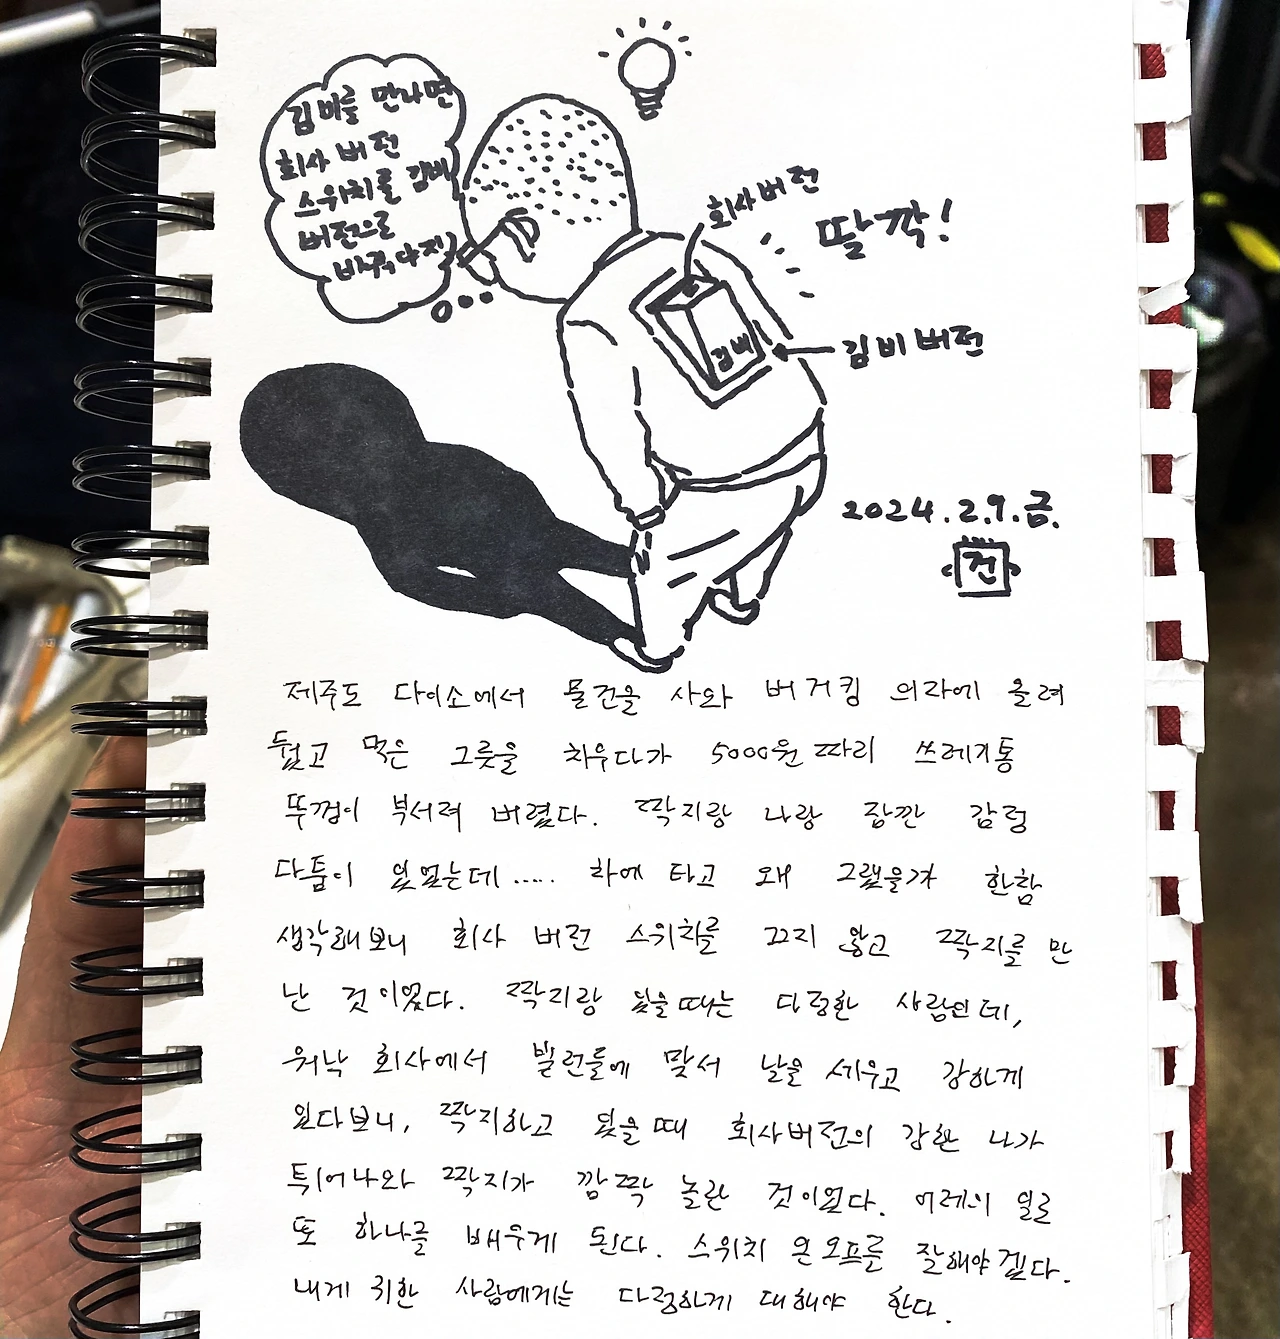 김비를 만나면
회사 버전
스위치를 김비
버전으로
바꿔야지
회사버전
딸깍!
김비
김비버전
2024.2.9.금.
건
제주도 다이소에서 물건을 사와 버거킹 의자에 올려
뒀고 먹은 그릇을 치우다가 5000원 짜리 쓰레기통
뚜껑이 부서져 버렸다. 짝지랑 나랑 잠깐 감정
다툼이 있었는데 ..... 차에 타고 왜 그랬을까 한참
생각해보니 회사 버전 스위치를 끄지 않고 짝지를 만
난 것이었다. 짝지랑 있을때는 다정한 사람인데,
워낙 회사에서 빌런들에 맞서 날을 세우고 강하게
있다보니, 짝지하고 있을 때 회사버전의 강한 나가
튀어나와 짝지가 깜짝 놀란 것이었다. 어제의 일로
또 하나를 배우게 된다. 스위치 온오프를 잘해야겠다.
내게 귀한 사람에게는 다정하게 대해야 한다.